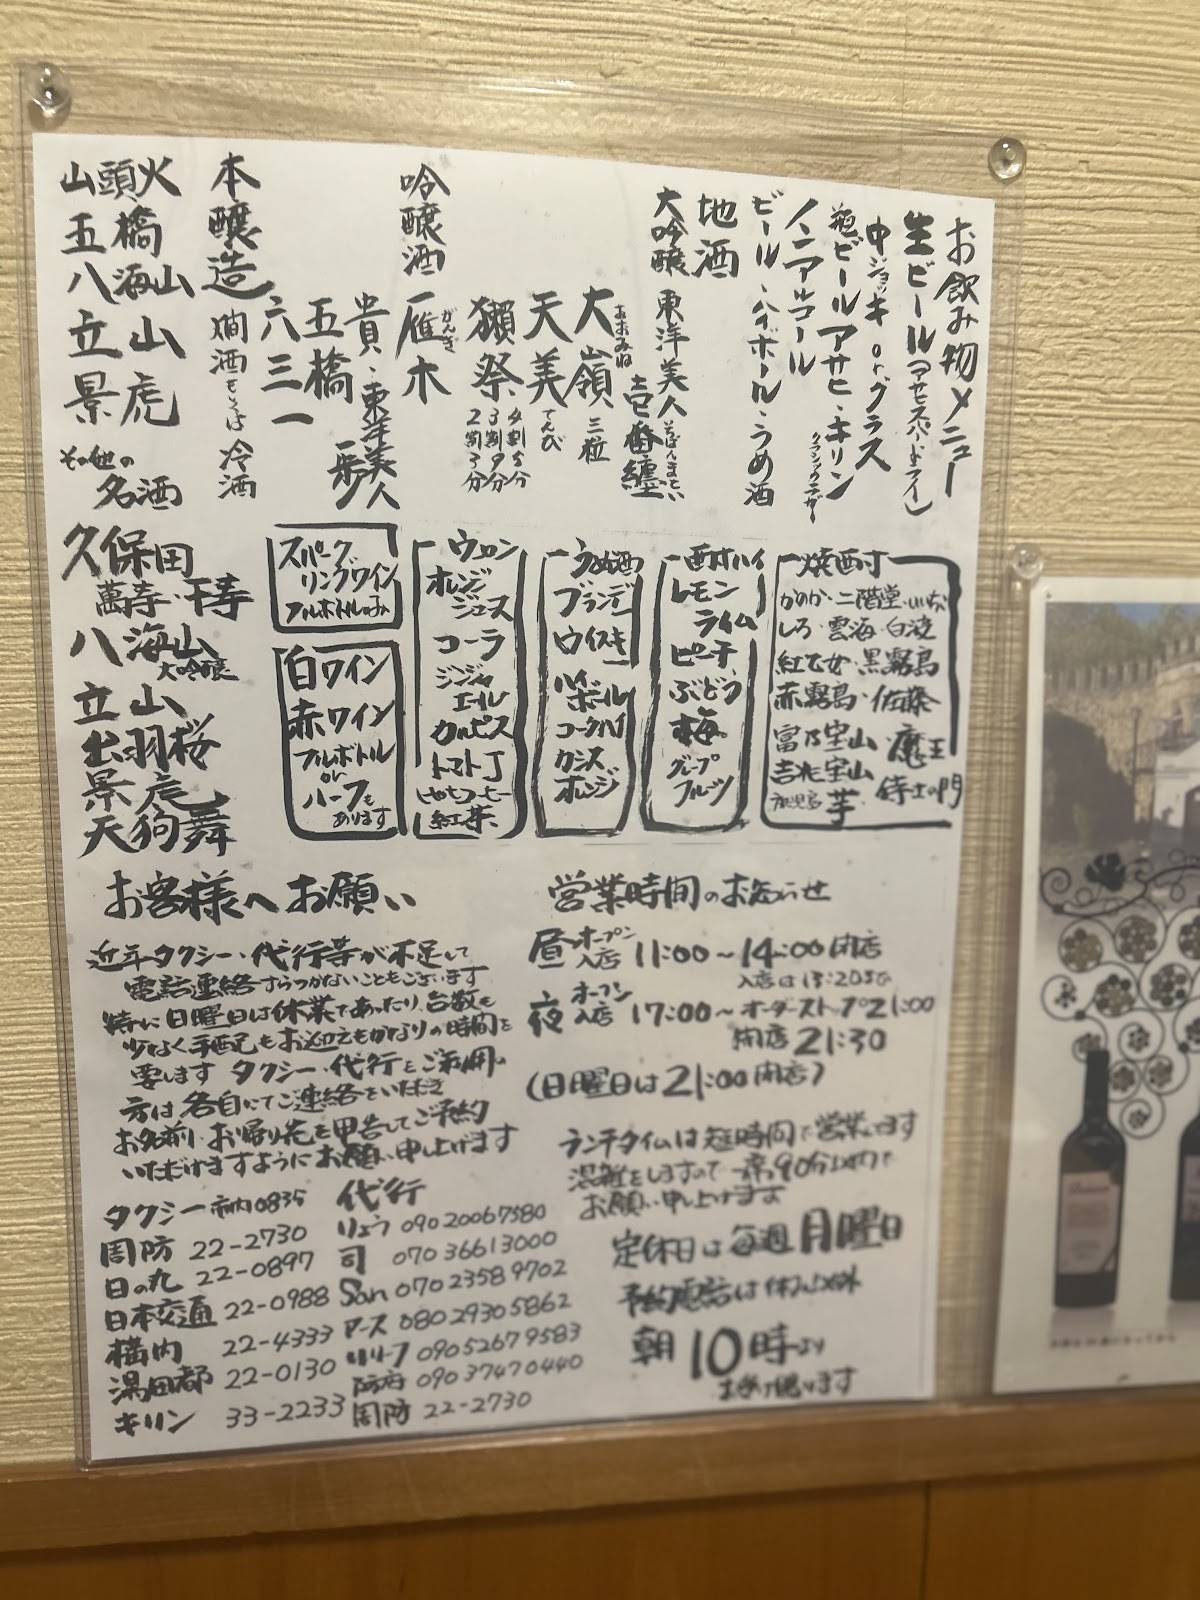 お飲み物メニュー
生ビール(アサヒスーパードライ)
中ジョッキorグラス
瓶ビールアサヒ・キリン
クラシックラガー
ノンアルコール
ビール・ハイボール・うめ酒
地酒
大吟醸 東洋美人 壱番纏 いちばんまとい
大嶺 おおみね 三粒
天美 てんび
獺祭 4割5分
3割9分
2割3分
吟醸酒 雁木 がんぎ
貴・東洋美人
一歩
五橋
六三一
本醸造 燗酒もしくは冷酒
山頭火
五橋
八海山
立山
景虎
その他の
名酒
久保田
萬寿・千寿
八海山
大吟醸
立山
出羽桜
景虎
天狗舞
焼酎
かのか・二階堂・いいちこ
しろ・雲海・白波
紅乙女・黒霧島
赤霧島・佐藤
富乃宝山・魔王
吉兆宝山
鹿児島 芋・侍士の門
酎ハイ
レモン
ライム
ピーチ
ぶどう
梅
グレープ
フルーツ
うめ酒
ブランデー
ウイスキー
ハイ
ボール
コークハイ
カシス
オレンジ
ウーロン
オレンジ
ジュース
コーラ
ジンジャ
エール
カルピス
トマトJ
紅茶
スパーク
リングワイン
フルボトルのみ
白ワイン
赤ワイン
フルボトル
or
ハーフも
あります
お客様へお願い
近年タクシー・代行等が不足して
電話連絡すらつかないこともございます
特に日曜日は休業であったり、台数も
少なく手配もお迎えもかなりの時間を
要します タクシー・代行をご利用の
方は各自にてご連絡をいただき
お名前、お帰り先を申告してご予約
いただけますようにお願い申し上げます
タクシー 市内0835
周防 22-2730
日の丸 22-0897
日本交通 22-0988
構内 22-4333
湯田都 22-0130
キリン 33-2233
代行
りょう 09020067580
司 07036613000
San 07023589702
アース 08029305862
リリーフ 09052679583
防府 09037470440
周防 22-2730
営業時間のお知らせ
昼 オープン入店 11:00～14:00閉店
入店は13:20まで
夜 オープン入店 17:00～オーダーストップ21:00
閉店21:30
(日曜日は21:00閉店)
ランチタイムは短時間で営業してます
混雑をしますので一席90分以内で
お願い申し上げます
定休日は毎週月曜日
予約電話は休み以外
朝10時より
お受け賜ります